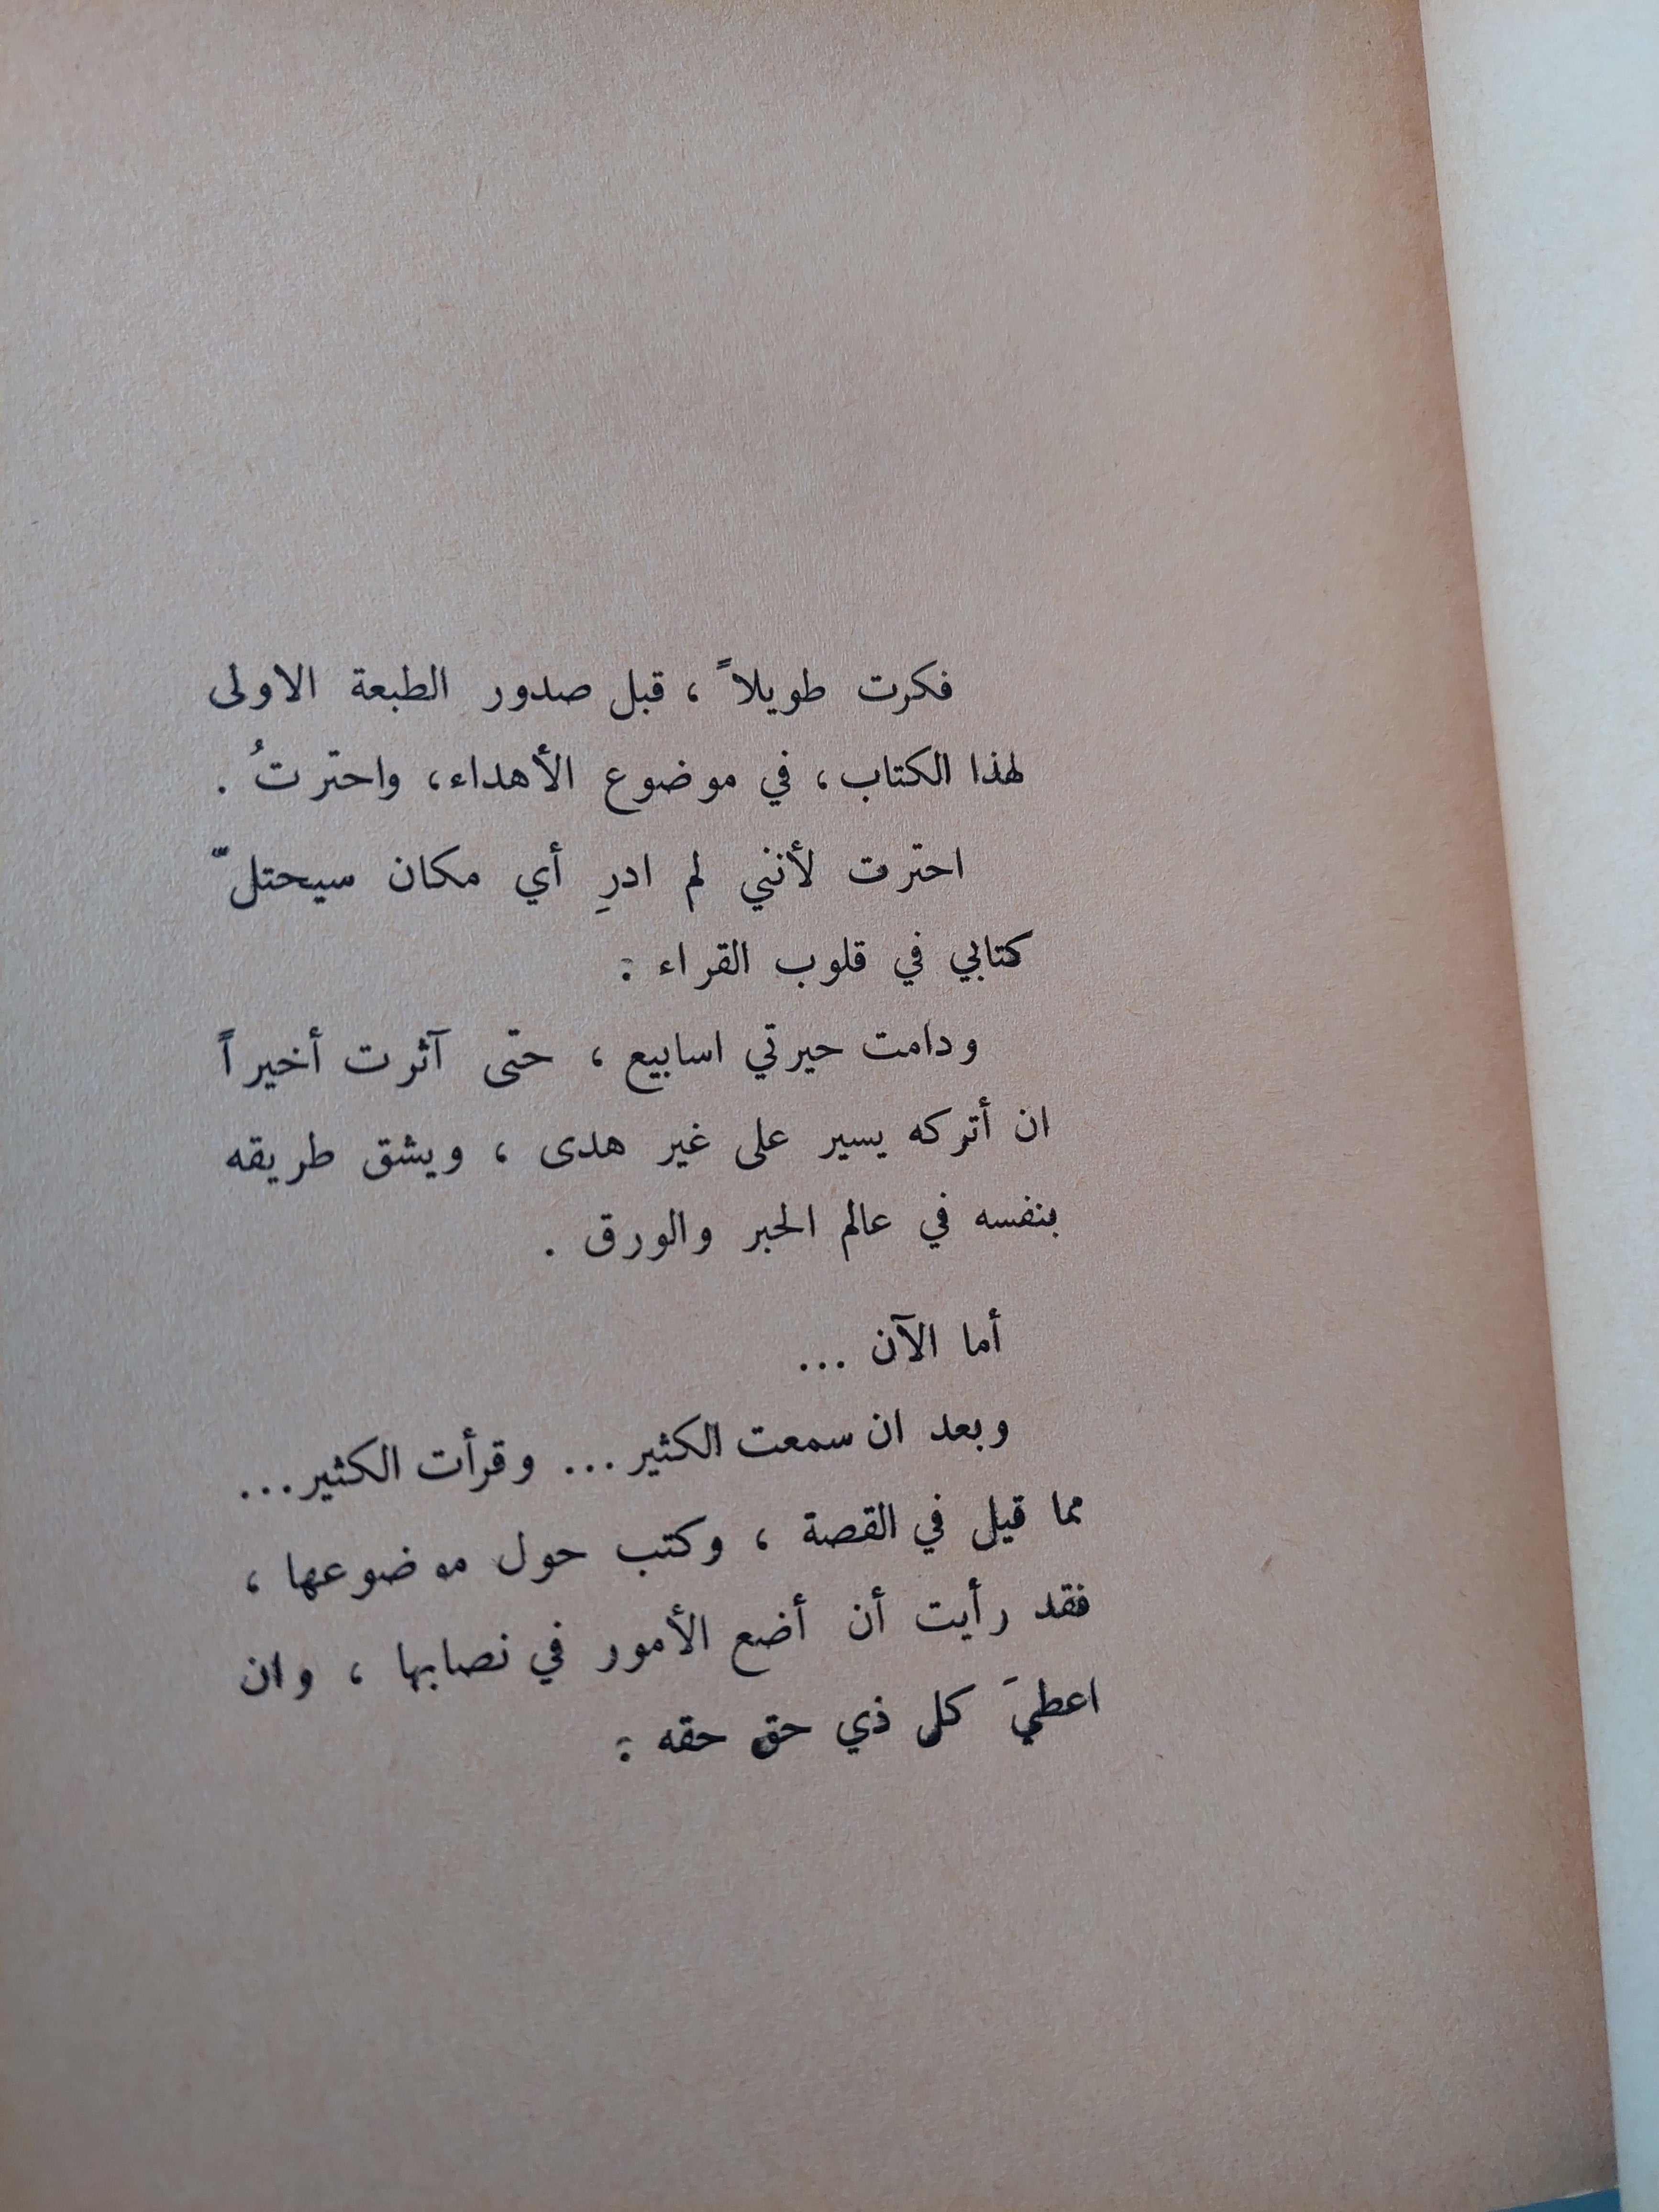 فكرت طويلاً ، قبل صدور الطبعة الاولى
لهذا الكتاب، في موضوع الأهداء، واحترتُ .
احترت لأنني لم ادرِ أي مكان سيحتلّ
كتابي في قلوب القراء :
ودامت حيرتي اسابيع ، حتى آثرت أخيراً
ان أتركه يسير على غير هدى ، ويشق طريقه
بنفسه في عالم الحبر والورق .
أما الآن ...
وبعد ان سمعت الكثير... وقرأت الكثير...
مما قيل في القصة ، وكتب حول موضوعها ،
فقد رأيت أن أضع الأمور في نصابها ، وان
اعطيَ كل ذي حق حقه :